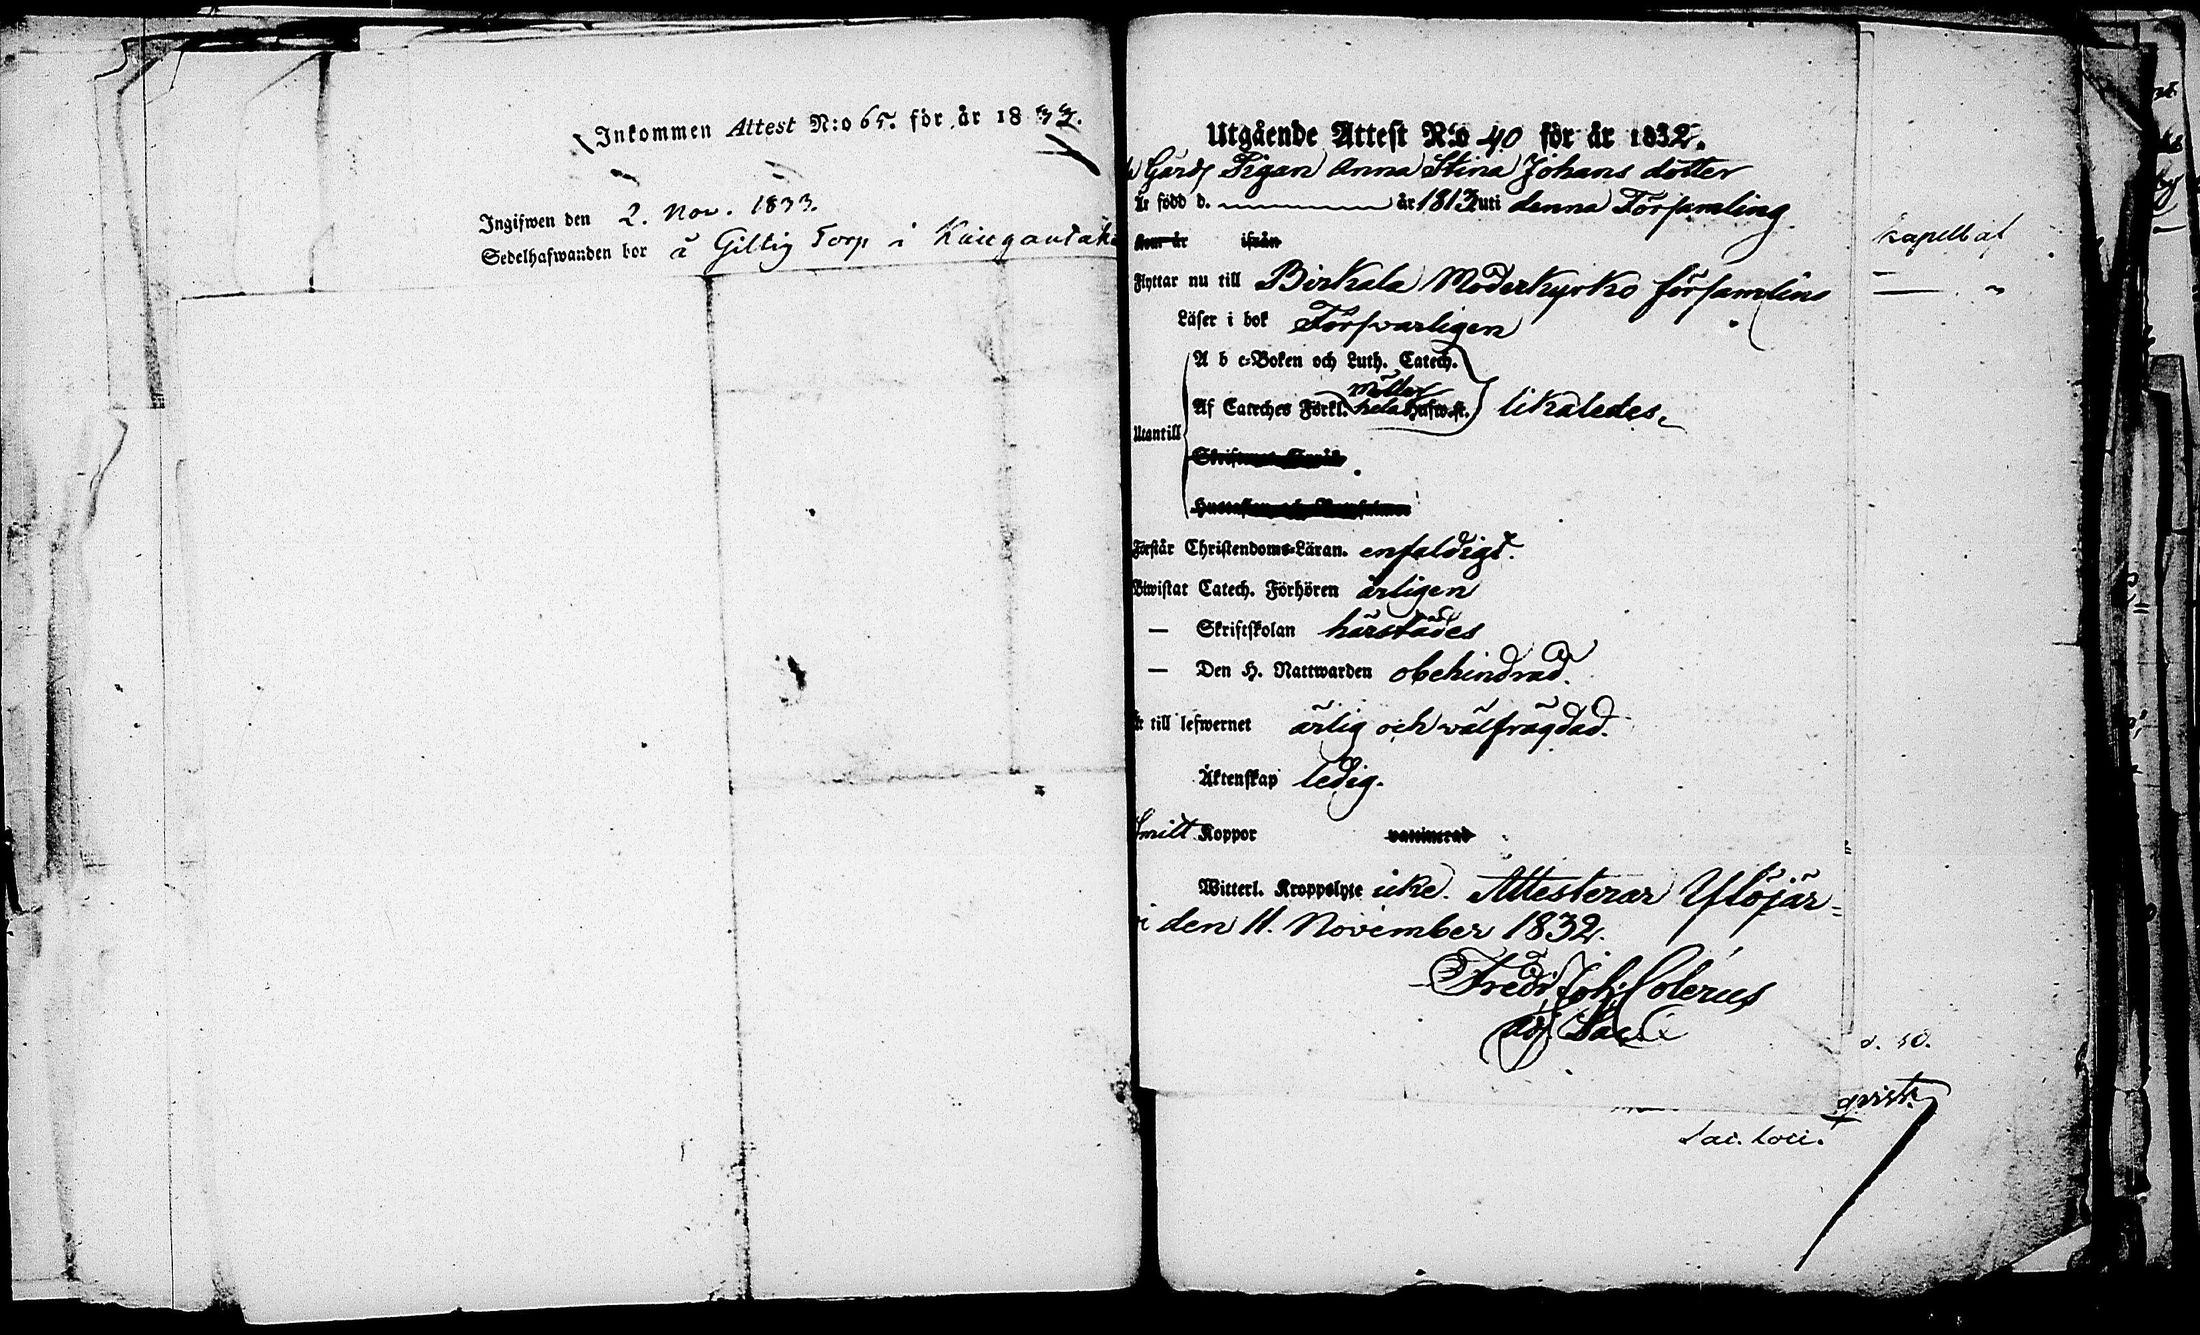 Inkommen Attest N:o 65. för år 1833.
Ingifwen den 2. Nov. 1833.
Sedelhafwanden bor å Gillig Torp i
Utgående Attest N:o 40 för år 1832.
Pigan Anna Stina Johans dotter
Är född d. ———— år 1813 uti denna Församling
ifrån
Flyttar nu till Birkala Moderkyrko församling
Läser i bok Försvarligen
A b c-Boken och Luth. Catech.
Möller
Af Cateches Förkl. hela Hufwst. likaledes.
Utantill
Förstår Christendoms-Läran. enfaldigt.
Biwistat Catech. Förhören årligen
— Skriftskolan härstädes
— Den H. Nattwarden obehindrad.
till lefwernet ärlig och wälfrägdad.
Äktenskap ledig.
Koppor vaccinerad
Witterl. Kroppslyte icke. Attesterar Ylöjär=
vi den 11. November 1832.
Fredr Joh: Colerus
adj. Sac.
kapell af
s. 10.
qvist.
Sac. loci.